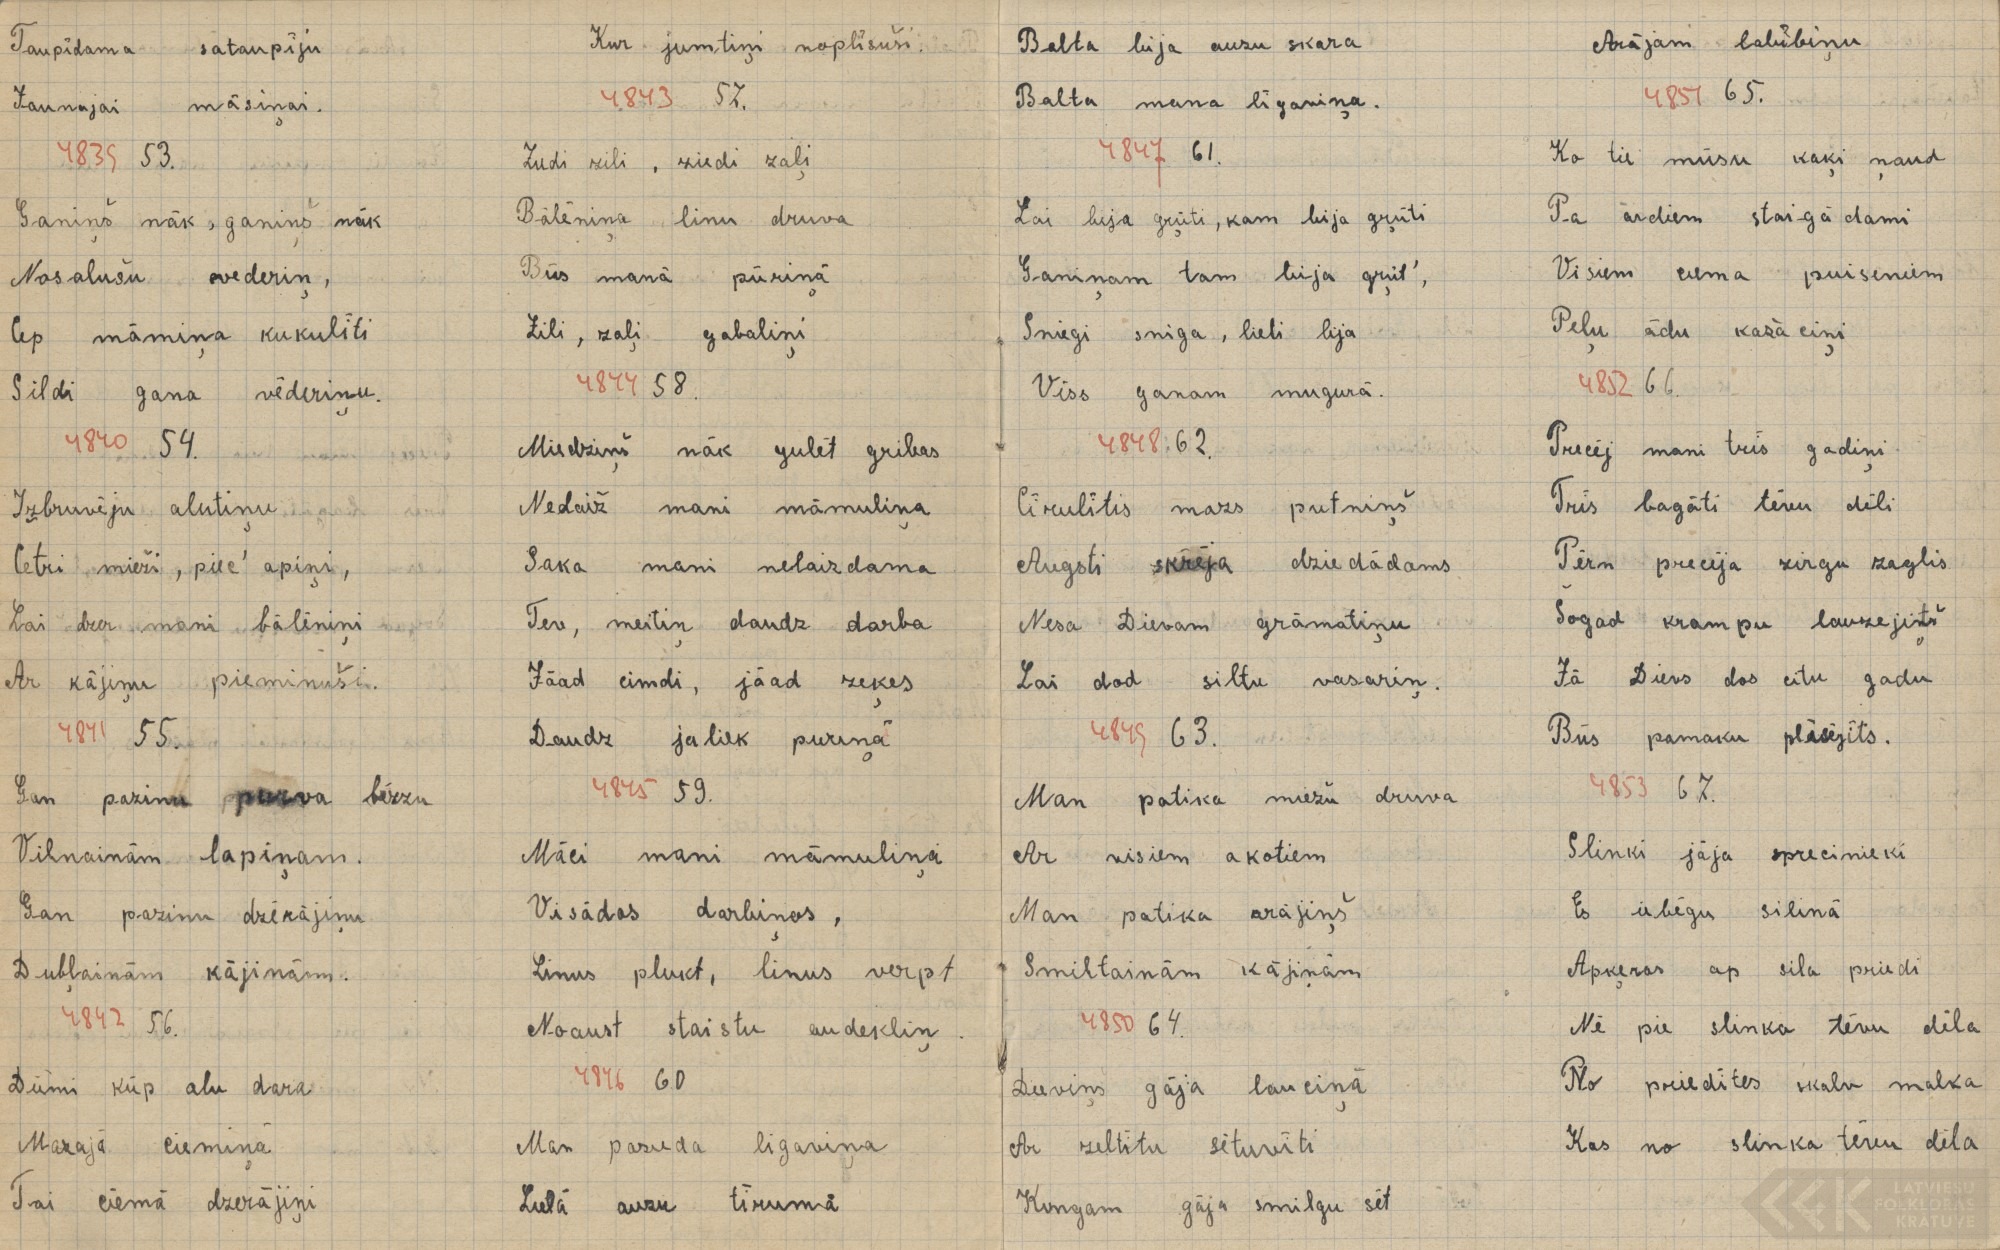 Taupīdama sataupīju
Jaunajai māsiņai.
4839 53.
Ganiņš nāk, ganiņš nāk
Nosalušu vederiņ,
Cep māmiņa kukulīti
Sildi gana vēderiņu.
4840 54.
Izbruvēju alutiņu
Cetri mieži, piec' apiņi,
Lai dzer mani bālēniņi
Ar kājiņu pieminuši.
4841 55.
Gan pazinu purva bērzu
Vilnainām lapiņam.
Gan pazinu dzērājiņu
Dubļainām kājinām.
4842 56.
Dūmi kūp alu dara
Mazajā ciemiņā
Tai ciemā dzerājiņi
Kur jumtiņi noplīsuši.
4843 57.
Ziedi zili, ziedi zaļi
Bālēniņa linu druva
Būs manā pūriņā
Zili, zaļi gabaliņi
4844 58.
Miedziņš nāk gulēt gribas
Nedaiž mani māmuliņa
Saka mani nelaizdama
Tev, meitiņ daudz darba
Jāad cimdi, jāad zeķes
Daudz jaliek puriņā
4845 59.
Māci mani māmuliņa
Visādos darbiņos,
Linus plukt, linus verpt
Noaust staistu audekliņ.
4846 60
Man pazuda ligaviņa
Lielā auzu tīrumā
Balta bija auzu skara
Balta mana līgaviņa.
4847 61.
Lai bija grūti, kam bija grūti
Ganiņam tam bija grūt',
Sniegi sniga, lieti lija
Viss ganam mugurā.
4848 62.
Cīrulītis mazs putniņš
Augsti skrēja dziedādams
Nesa Dievam grāmatiņu
Lai dod siltu vasariņ.
4849 63.
Man patika miežu druva
Ar visiem akotiem
Man patika arājiņš
Smiltainām kājiņām
4850 64.
Dieviņš gāja lauciņā
Ar zeltītu sētuvīti
Kungam gāja smilgu sēt
Arājam labībiņu
4851 65.
Ko tie mūsu kaķi ņaud
Pa ārdiem staigādami
Visiem ciema puiseniem
Peļu ādu kažāciņi
4852 66.
Precēj mani trīs gadiņi
Trīs bagāti tēvu dēli
Pērn precēja zirgu zaglis
Šogad krampu lauzejiņš
Jā Dievs dos citu gadu
Būs pamaku plāsējīts.
4853 67.
Slinki jāja precinieki
Es iebēgu silinā
Apķeros ap sila priedi
Nē pie slinka tēvu dēla
No priedītes skalu malka
Kas no slinka tēvu dēla
LATVIEŠU
FOLKLORAS
KRĀTUVE